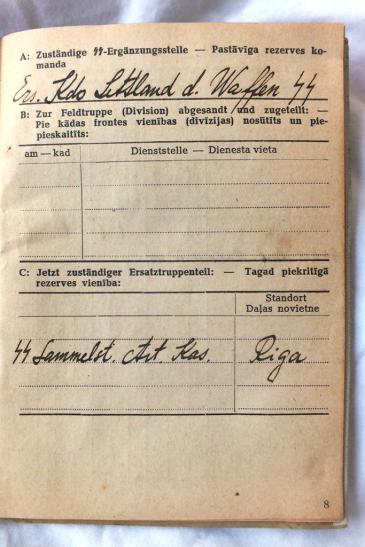 A: Zuständige ϟϟ-Ergänzungsstelle — Pastāvīga rezerves ko-
manda
Ers. Kdo Lettland d. Waffen ϟϟ
B: Zur Feldtruppe (Division) abgesandt und zugeteilt: —
Pie kādas frontes vienības (divīzijas) nosūtīts un pie-
pieskaitīts:
am — kad
Dienststelle — Dienesta vieta
C: Jetzt zuständiger Ersatztruppenteil: — Tagad piekritīgā
rezerves vienība:
Standort
Daļas novietne
ϟϟ Sammelst. Art. Kas. Riga
8